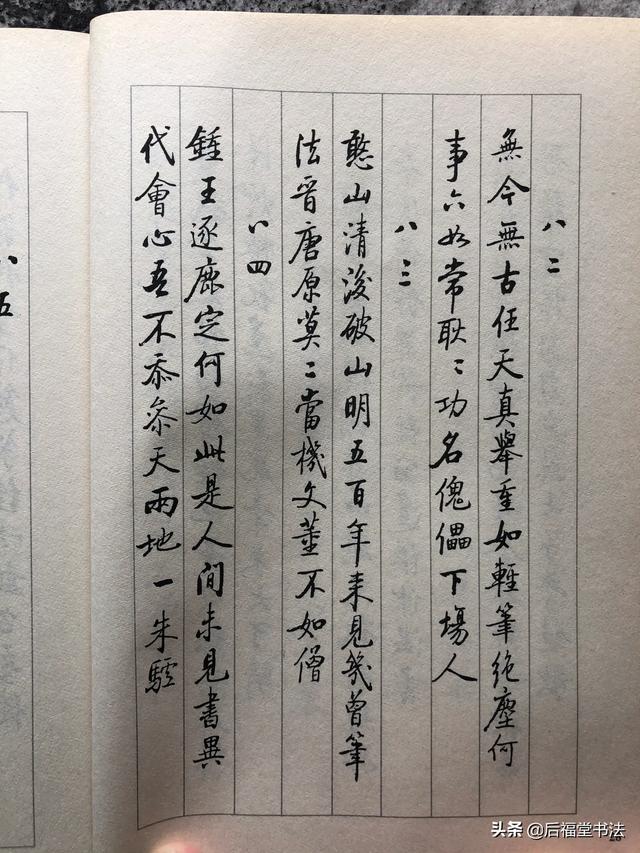 八二
無今無古任天真舉重如輕筆絕塵何
事六如常耿〻功名傀儡下場人
八三
憨山清後破山明五百年來見幾曾筆
法晉唐原莫二當機文董不如僧
八四
鍾王逐鹿定何如此是人間未見書異
代會心吾不忝參天兩地一朱驢
八五
头条 @后福堂书法